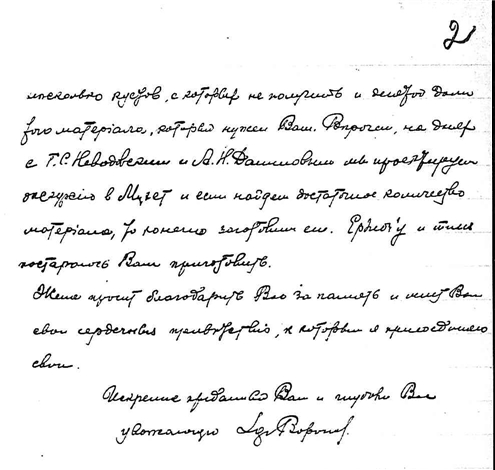 2
несколько кустов, с которых не получить и десятой доли
того материала, который нужен Вам. Впрочем, на днях
с Т.С. и А.Н. Даниловым мы проектируем
экскурсию в и если найдем достаточное количество
материала, то конечно заготовим его. и
постараюсь Вам приготовить.
Жена просит благодарить Вас за память и шлет Вам
свои сердечные приветствия, к которым я присоединяю
свои.
Искренне преданный Вам и глубоко Вас
уважающий